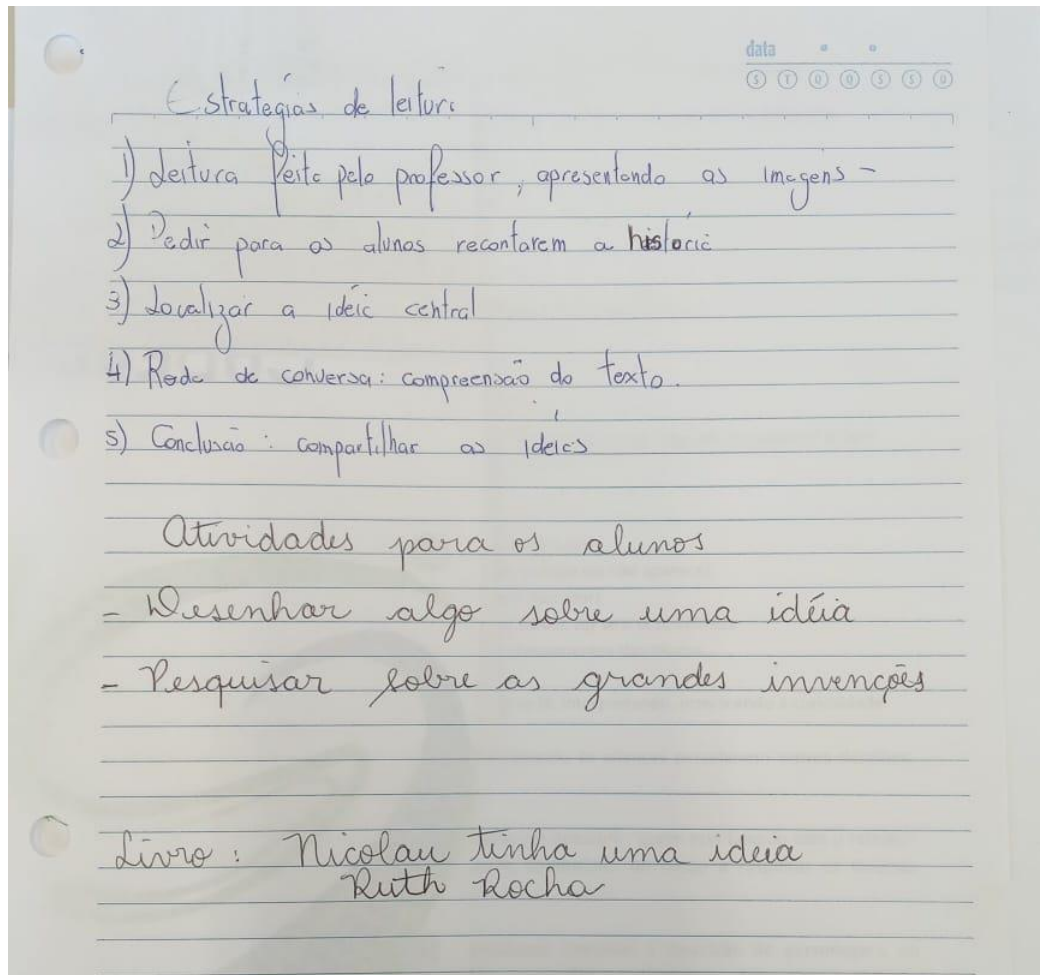 data
S T Q Q S S D
Estratégias de leitura
1) Leitura feita pelo professor, apresentando as imagens -
2) Pedir para os alunos recontarem a história
3) Localizar a ideia central
4) Roda de conversa: compreensão do texto.
5) Conclusão: compartilhar as ideias
Atividades para os alunos
- Desenhar algo sobre uma idéia
- Pesquisar sobre as grandes invenções
Livro: Nicolau tinha uma ideia
Ruth Rocha